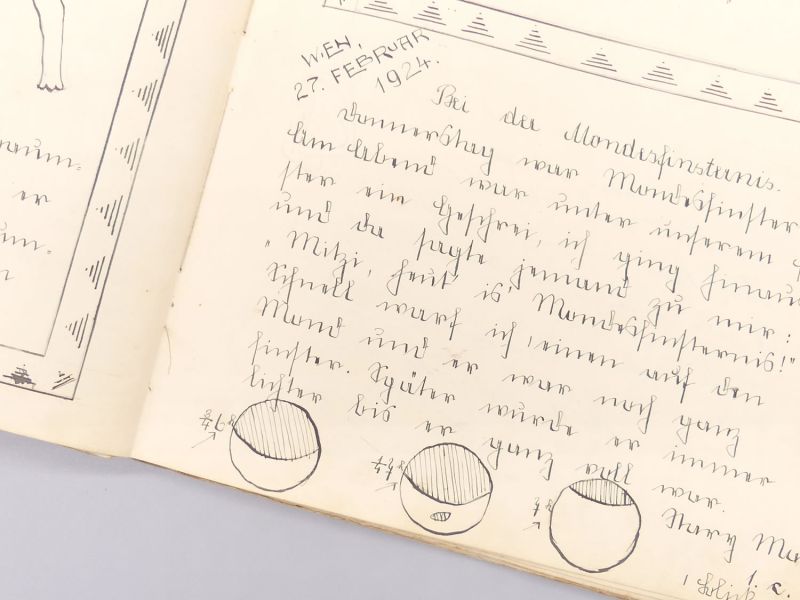 WIEN,
27. FEBRUAR
1924.
Bei der Mondesfinsternis.
Donnerstag war Mondesfinster
Am Abend war unter unserem
ster ein Geschrei, ich ging hinaus
und da sagte jemand zu mir:
„Mitzi, heut is' Mondesfinsternis!"
Schnell warf ich einen auf den
Mond und er war noch ganz
finster. Später wurde er immer
lichter bis er ganz hell war.